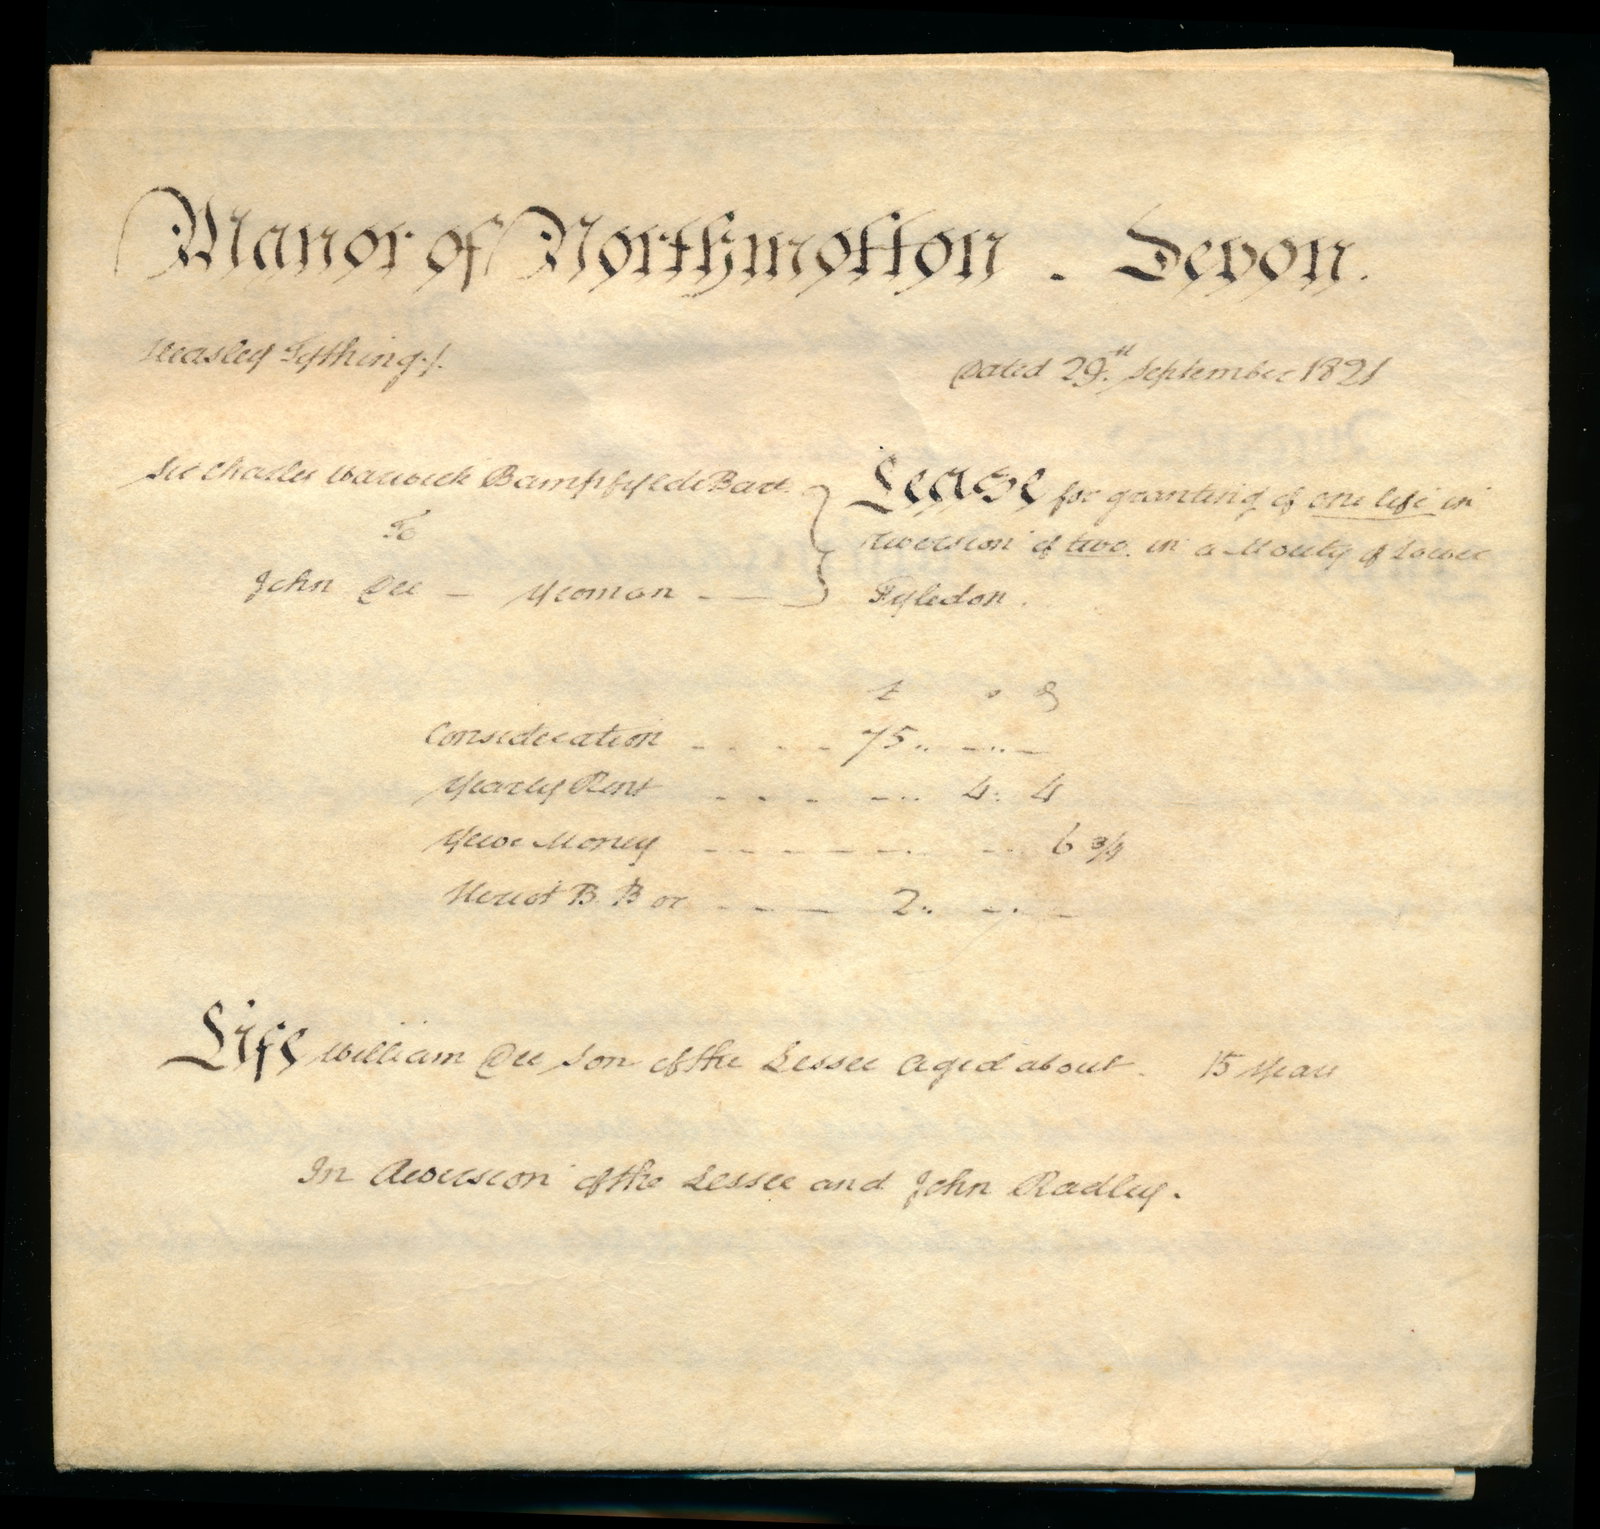 Manor of Northmolton . Devon.
Heasley Tything./.
Dated 29th. September 1821
Sir Charles Warwick Bampfylde Bart.
To
John Dee — Yeoman — —
Lease for granting of one life in
reversion of two in a Moiety of Lower
Fyledon.
£ s d
Consideration - - - - 75.. -..-
Yearly Rent - - - - -.. 4: 4
Yewe Money - - - - - -.. -.. 6 3/4
Heriot B. B or - - - 2.. -.. -
Life William Dee Son of the Lessee Aged about . 15 Years
In Reversion of the Lessee and John Radley.